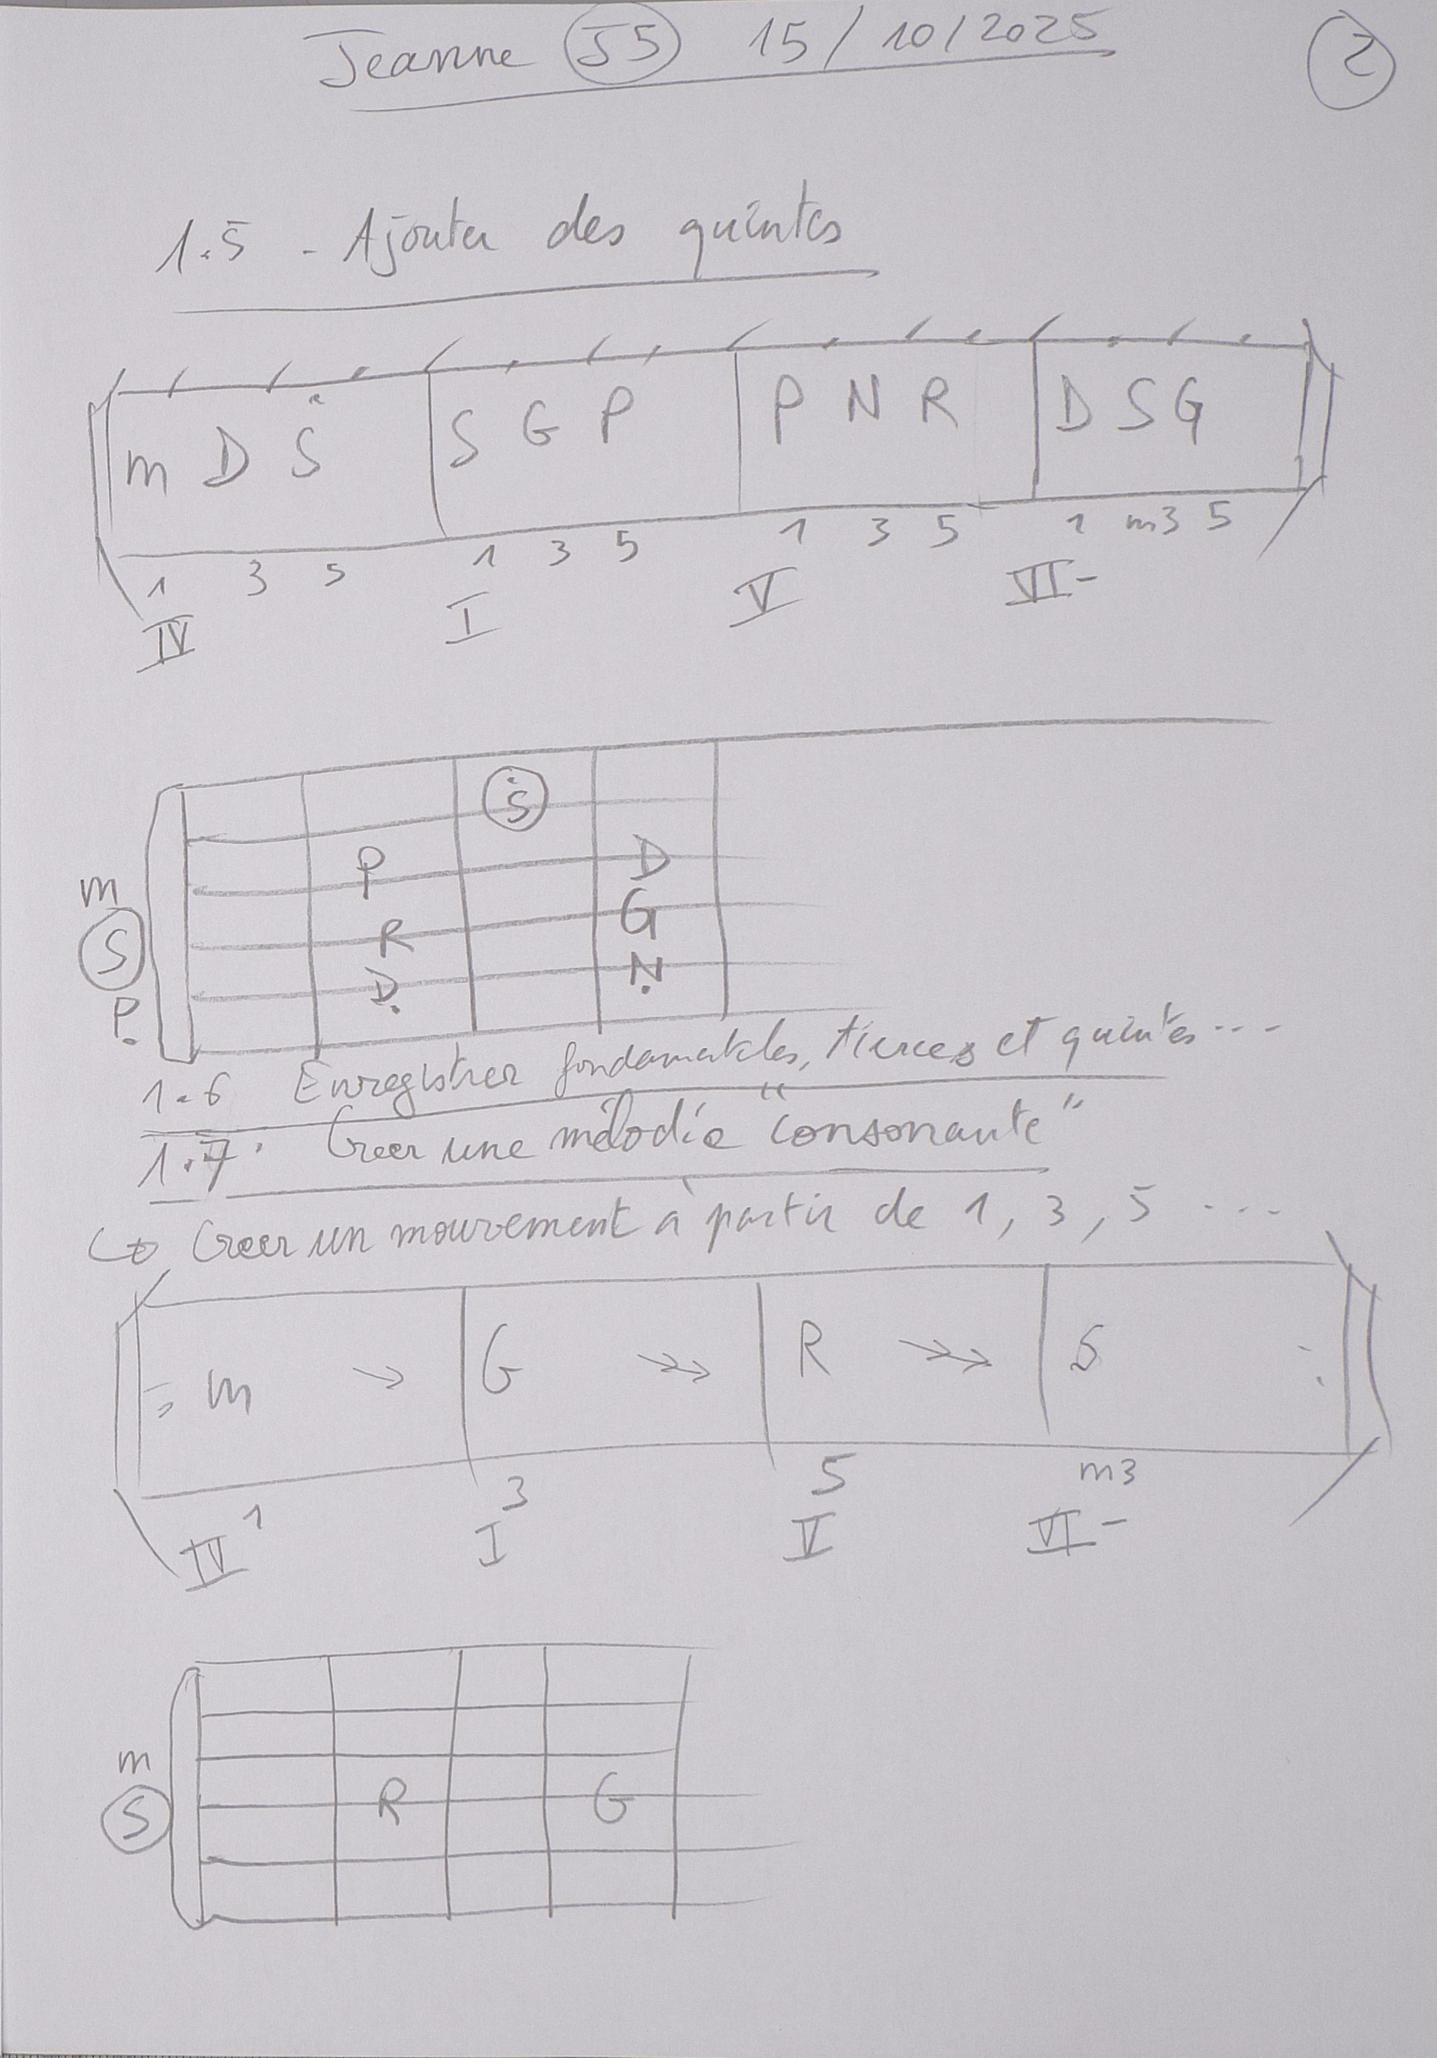 Jeanne J5 15/10/2025
2
1.5 - Ajouter des quintes
m D Ṡ S G P P N R D S G
1 3 5 1 3 5 1 3 5 1 m3 5
IV I V VI-
Ṡ
P D
m
G
S R
Ḍ Ṇ
P.
1.6 Enregistrer fondamentales, tierces et quintes...
1.7. Creer une mélodie "consonante"
↳ Creer un mouvement à partir de 1, 3, 5 ...
m → G →→ R →→ S
1 3 5 m3
IV I V VI-
m
S R G